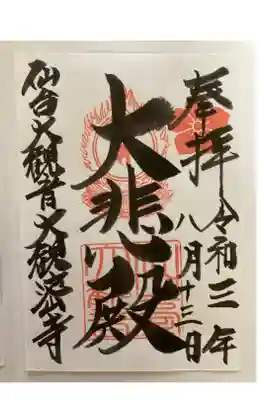 奉拝
令和三年
八月十三日
大悲殿
仙台大観音大観密寺